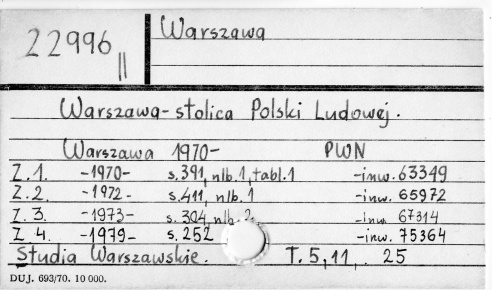 22996 Warszawa
II
Warszawa-stolica Polski Ludowej.
Warszawa 1970- PWN
Z.1. -1970- s.391, nlb.1, tabl.1 -inw. 63349
Z.2. -1972- s.411, nlb. 1 -inw. 65972
Z.3. -1973- s. 304, nlb. 2 -inw. 67314
Z 4. -1979- s. 252 -inw. 75364
Studia Warszawskie. T. 5, 11, . 25
DUJ. 693/70. 10 000.